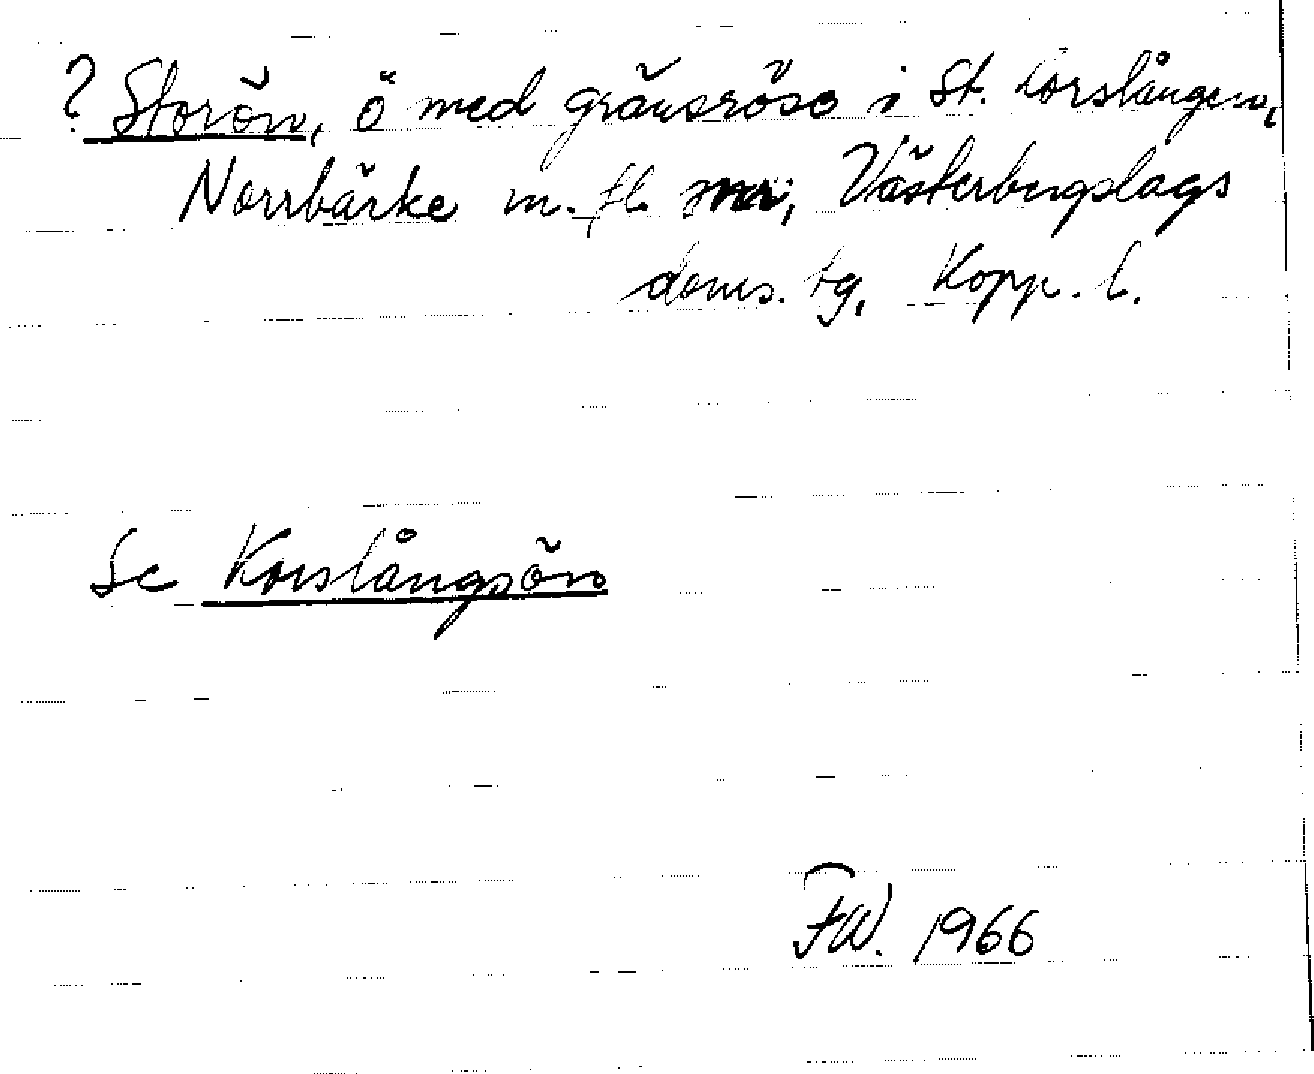 ? Storön, ö med gränsröse i St. Korslången,
Norrbärke m. fl. snr, Västerbergslags
doms. tg, Kopp. l.
Se Korslångsön
FW. 1966